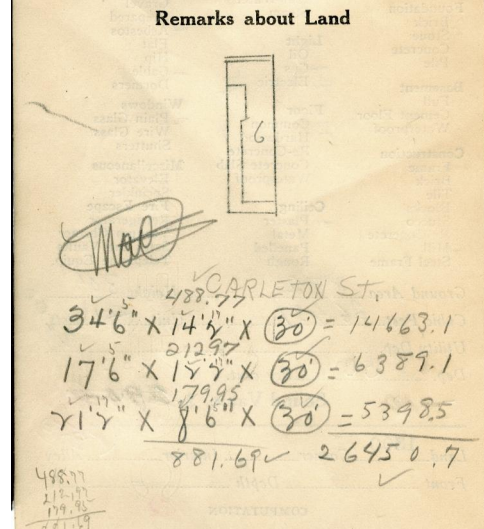 Remarks about Land
6
CARLETON ST.
5 488.77
34'6" X 14'2" X 30' = 14663.1
5 212.97
17'6" X 12'2" X 30' = 6389.1
179.95
21'2" X 8'6" X 30' = 5398.5
881.69 26450.7
488.77
212.97
179.95
881.69